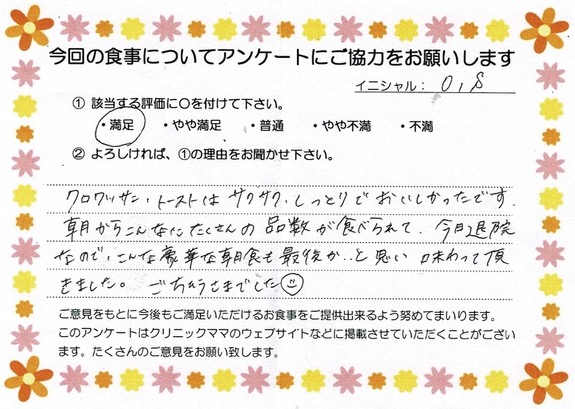 今回の食事についてアンケートにご協力をお願いします
イニシャル： O.S
① 該当する評価に○を付けて下さい。
・満足 ・やや満足 ・普通 ・やや不満 ・不満
② よろしければ、①の理由をお聞かせ下さい。
クロワッサン、トーストは サクサク、しっとりで おいしかったです。
朝からこんなにたくさんの 品数が食べられて、今日退院
なので、こんな豪華な朝食も最後か…と思い 味わって頂
きました。 ごちそうさまでした
ご意見をもとに今後もご満足いただけるお食事をご提供出来るよう努めてまいります。
このアンケートはクリニックママのウェブサイトなどに掲載させていただくことがござい
ます。たくさんのご意見をお願い致します。